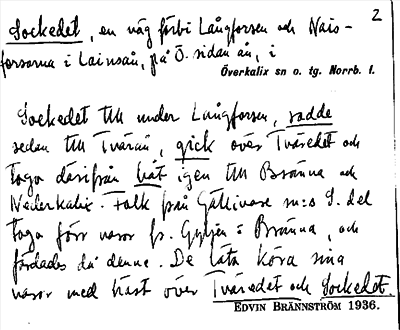 2
Sockedet, en väg förbi Långforsen och Nais-
forsarna i Lainsån, på Ö. sidan ån, i
Överkalix sn o. tg. Norrb. l.
Sockedet till under Långforsen, rodde
sedan till Tvärån, gick över Tväredet och
togo därifrån båt igen till Bränna och
Nederkalix. Folk från Gällivare m:s S. del
togo förr varor fr. Gyljen i Bränna, och
färdades då denna. De läto köra sina
varor med häst över Tväredet och Sockedet.
EDVIN BRÄNNSTRÖM 1936.